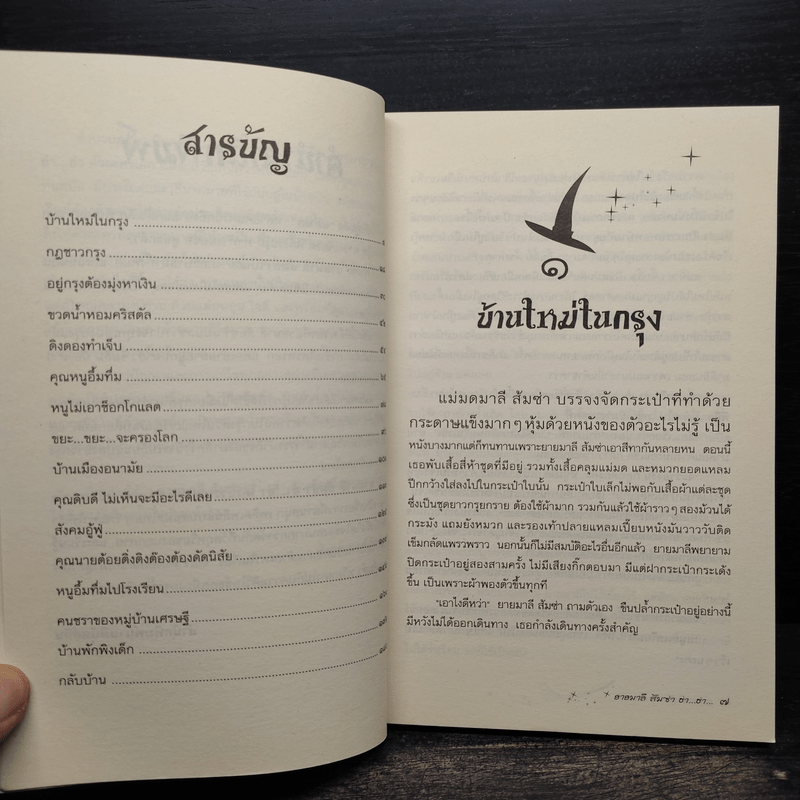 สารบัญ
บ้านใหม่ในกรุง
กฎชาวกรุง
อยู่กรุงต้องมุ่งหาเงิน
ขวดน้ำหอมคริสตัล
ดิงดองทำเจ็บ
คุณหนูอิ้มทึ่ม
หนูไม่เอาช็อกโกแลต
ขยะ...ขยะ...จะครองโลก
บ้านเมืองอนามัย
คุณดิบดี ไม่เห็นจะมีอะไรดีเลย
สังคมอู้ฟู่
คุณนายต้อยติ่งติงต๊องต้องดัดนิสัย
หนูอิ้มทึ่มไปโรงเรียน
คนชราของหมู่บ้านเศรษฐี
บ้านพักพิงเด็ก
กลับบ้าน
๑
บ้านใหม่ในกรุง
แม่มดมาลี ส้มซ่า บรรจงจัดกระเป๋าที่ทำด้วย
กระดาษแข็งมากๆ หุ้มด้วยหนังของตัวอะไรไม่รู้ เป็น
หนังบางมากแต่ก็ทนทานเพราะยายมาลี ส้มซ่าเอาสีทากันหลายหน ตอนนี้
เธอพับเสื้อสี่ห้าชุดที่มีอยู่ รวมทั้งเสื้อคลุมแม่มด และหมวกยอดแหลม
ปีกกว้างใส่ลงไปในกระเป๋าใบนั้น กระเป๋าใบเล็กไม่พอกับเสื้อผ้าแต่ละชุด
ซึ่งเป็นชุดยาวกรุยกราย ต้องใช้ผ้ามาก รวมกันแล้วใช้ผ้าราวๆ สองม้วนได้
กระมัง แถมยังหมวก และรองเท้าปลายแหลมเปี๊ยบหนังมันวาววับติด
เข็มกลัดแพรวพราว นอกนั้นก็ไม่มีสมบัติอะไรอื่นอีกแล้ว ยายมาลีพยายาม
ปิดกระเป๋าอยู่สองสามครั้ง ไม่มีเสียงกิ๊กตอบมา มีแต่ฝากระเป๋ากระเด้ง
ขึ้น เป็นเพราะผ้าพองตัวขึ้นทุกที
"เอาไงดีหว่า" ยายมาลี ส้มซ่า ถามตัวเอง ขืนปล้ำกระเป๋าอยู่อย่างนี้
มีหวังไม่ได้ออกเดินทาง เธอกำลังเดินทางครั้งสำคัญ
ยายมาลี ส้มซ่า ฮ่า...ฮ่า... ๗